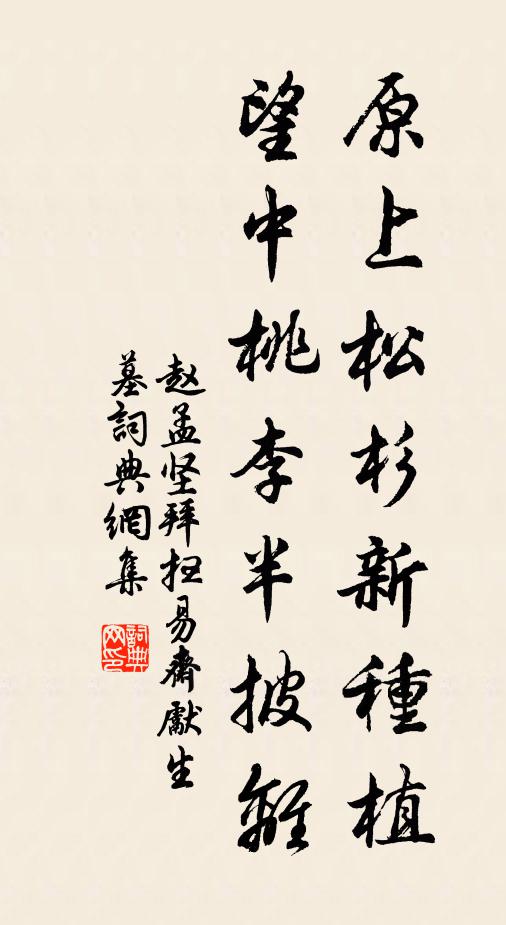 原上松杉新種植
望中桃李半披離
赵孟坚拜扫易齋獻生
墓詞典網集
詞典
网印